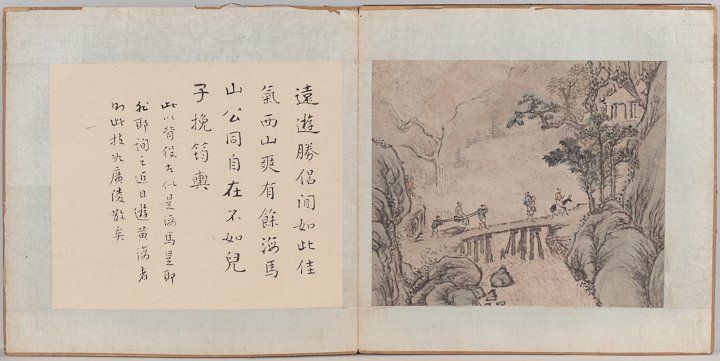 遠遊勝侶閒如此佳
氣西山爽有餘海馬
山公同自在不如兒
子挽筍輿
此以背役者似是海馬是耶
非耶詢之近日遊黃海者
此技 廣陵散矣